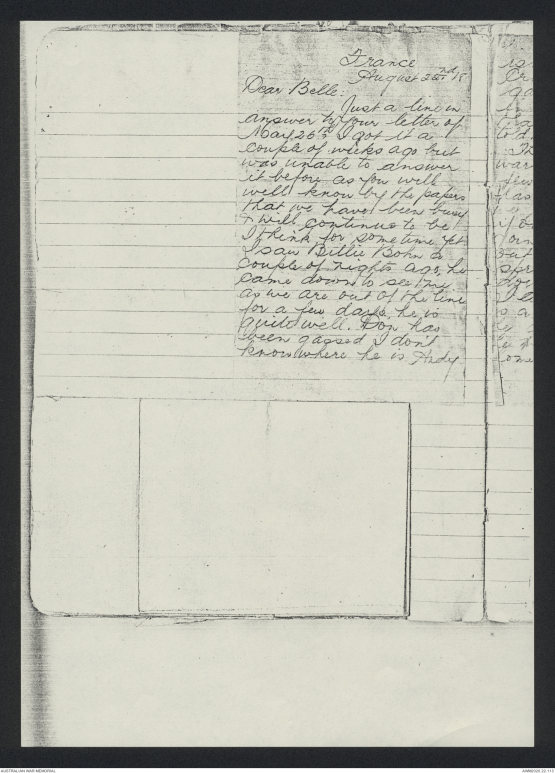 France
August 22nd/18
Dear Belle:
Just a line in
answer to your letter of
May 26th I got it a
couple of weeks ago but
was unable to answer
it before as you will
well know by the papers
that we have been busy
& will continue to be
I think for some time yet
I saw Billie Bohn a
couple of nights ago, he
came down to see me
as we are out of the line
for a few days he is
quite well. Don has
been gassed I dont
know where he is Andy
is
war
few
AUSTRALIAN WAR MEMORIAL